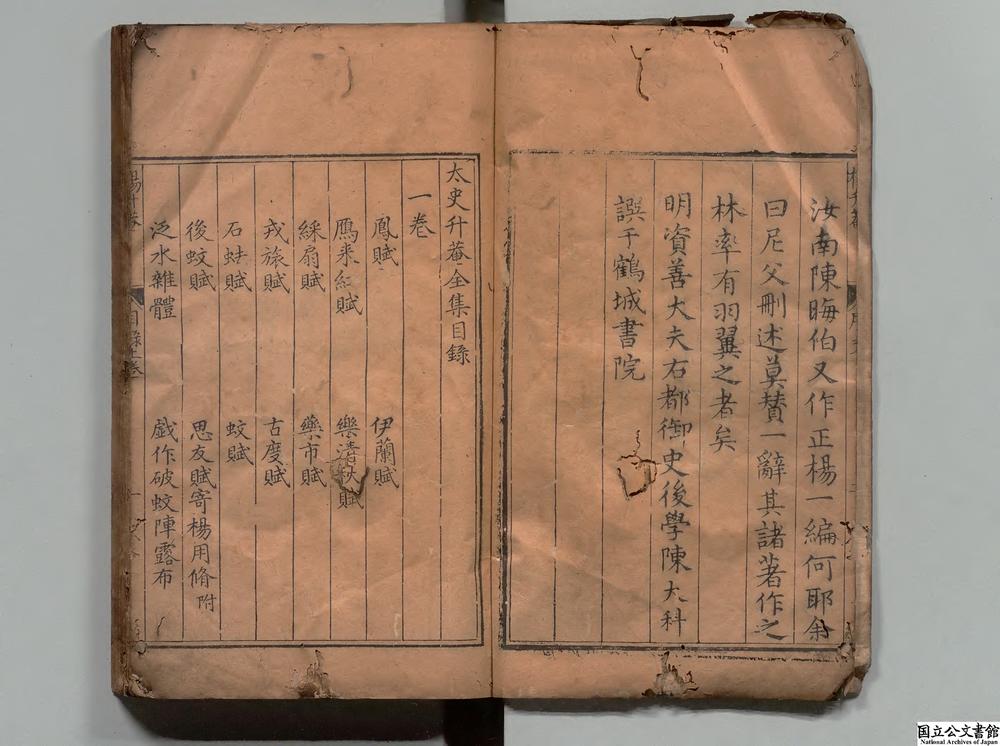 汝南陳晦伯又作正楊一編何耶余
曰尼父刪述莫賛一辭其諸著作之
林率有羽翼之者矣
明資善大夫右都御史後學陳大科
譔于鶴城書院
太史升菴全集目錄
一卷
鳳賦 伊蘭賦
鴈來紅賦 樂清秋賦
綵扇賦 藥市賦
戎旅賦 古度賦
石蛙賦 蚊賦
後蚊賦 思友賦寄楊用脩附
泛水雜體 戯作破蚊陣露布
国立公文書館
National Archives of Japan